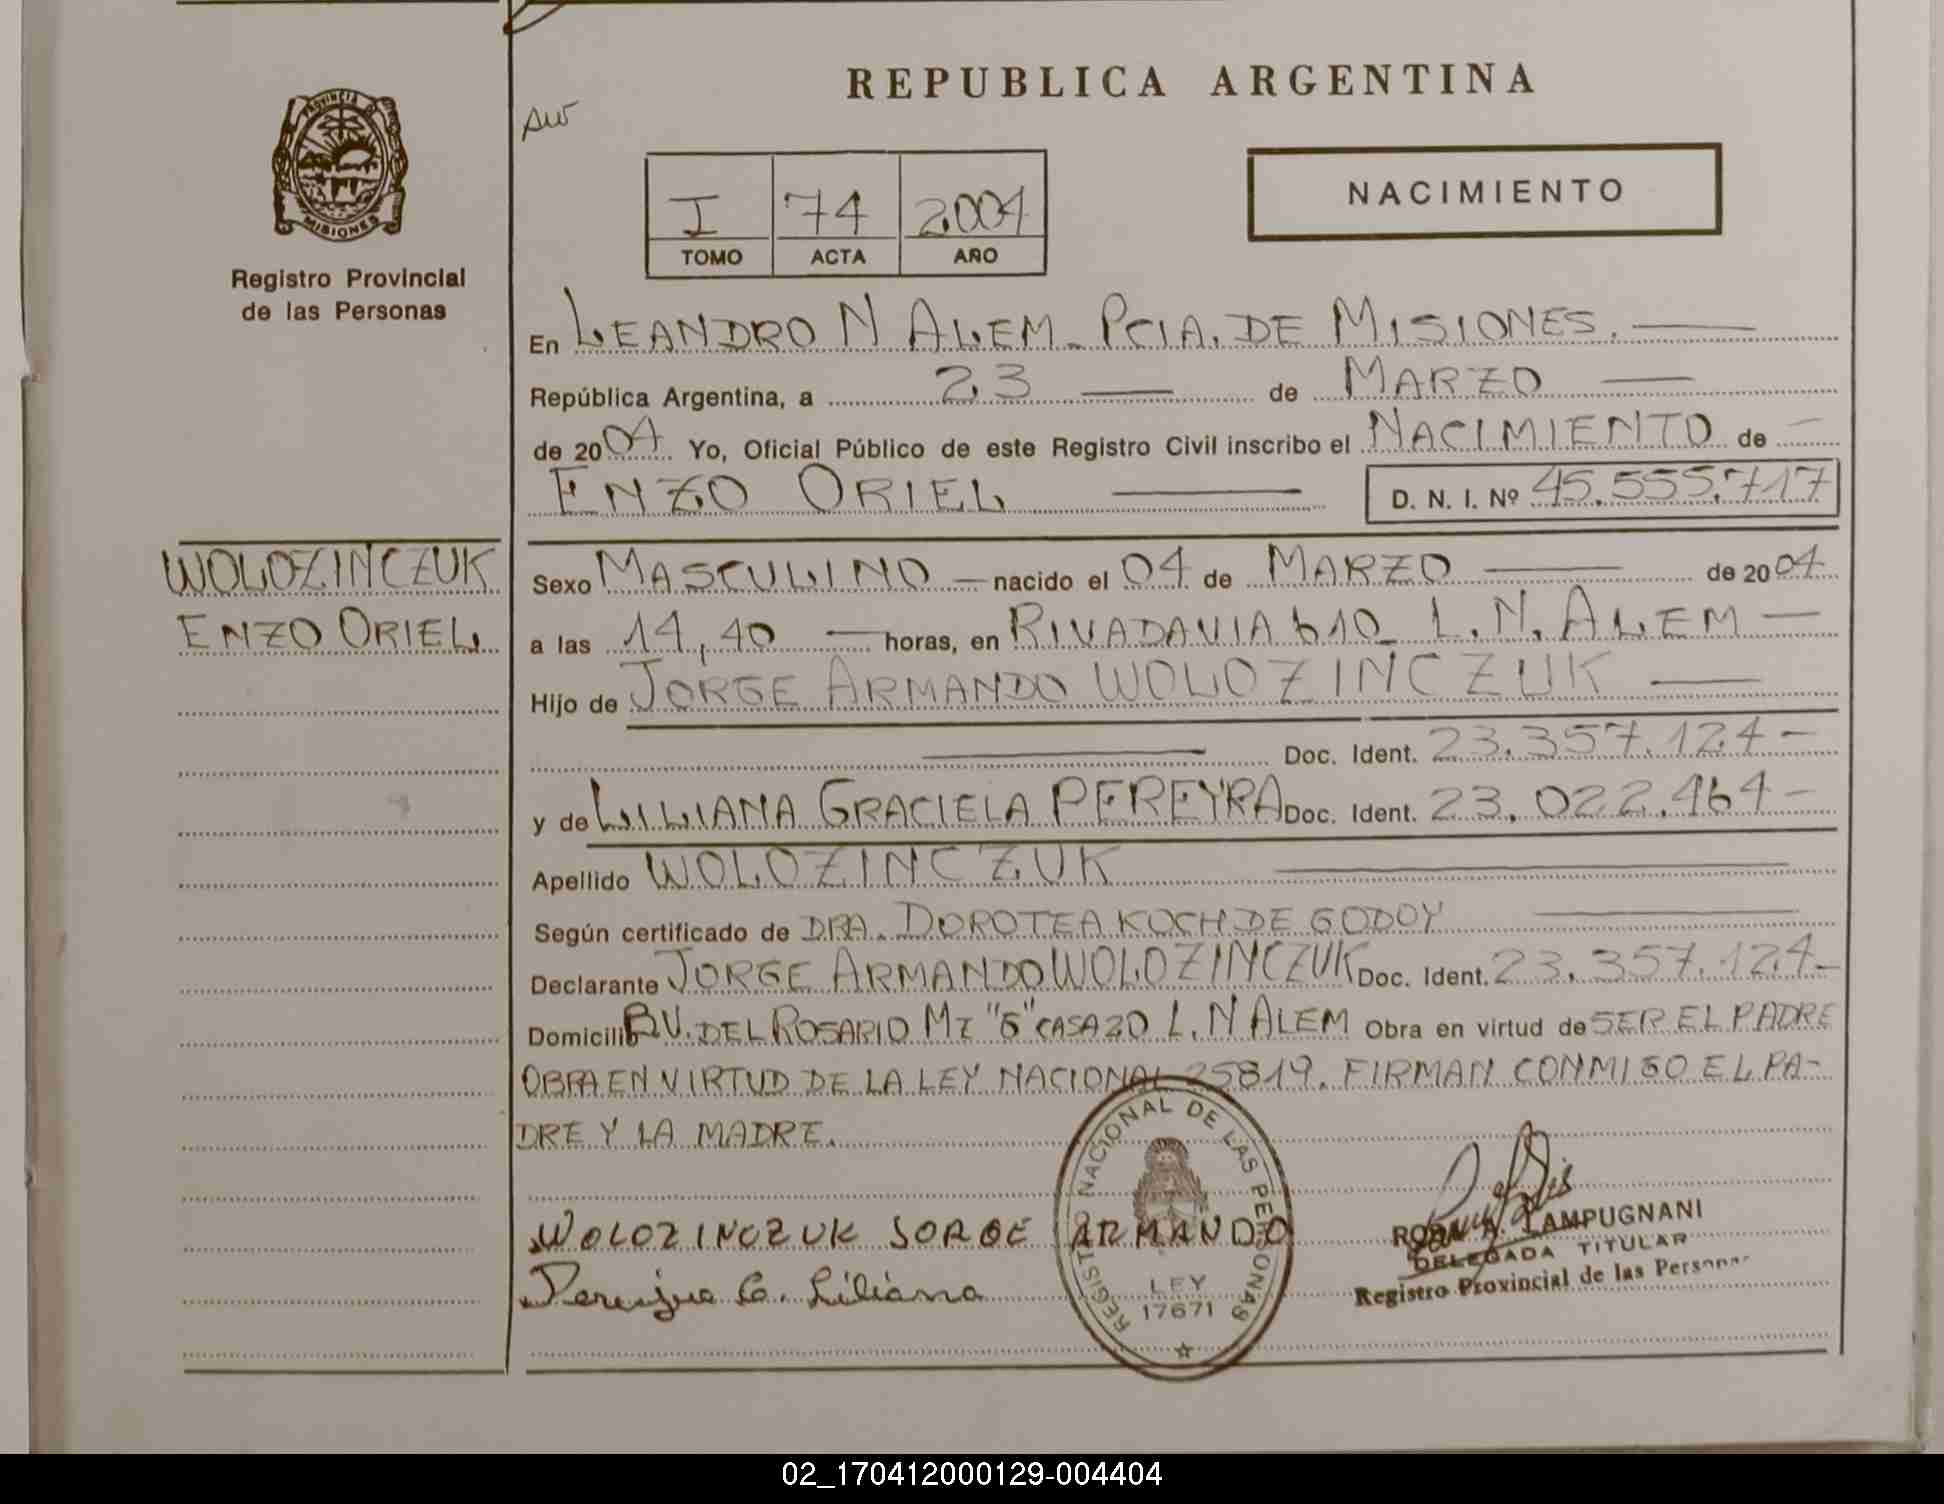 REPUBLICA ARGENTINA
PROVINCIA DE
MISIONES
Registro Provincial
de las Personas
I 74 2004
TOMO ACTA AÑO
NACIMIENTO
En LEANDRO N ALEM. PCIA. DE MISIONES.
República Argentina, a 23 de MARZO
de 2004 Yo, Oficial Público de este Registro Civil inscribo el NACIMIENTO de
ENZO ORIEL D. N. I. Nº 45.555.717
WOLOZINCZUK
ENZO ORIEL
Sexo MASCULINO nacido el 04 de MARZO de 2004
a las 14,40 horas, en RIVADAVIA 610 L.N. ALEM
Hijo de JORGE ARMANDO WOLOZINCZUK
Doc. Ident. 23.357.124
y de LILIANA GRACIELA PEREYRA Doc. Ident. 23.022.464
Apellido WOLOZINCZUK
Según certificado de DRA. DOROTEA KOCH DE GODOY
Declarante JORGE ARMANDO WOLOZINCZUK Doc. Ident. 23.357.124
Domicilio BV. DEL ROSARIO MZ "G" CASA 20 L.N ALEM Obra en virtud de SER EL PADRE
OBRA EN VIRTUD DE LA LEY NACIONAL 25819. FIRMAN CONMIGO EL PA-
DRE Y LA MADRE.
REGISTRO NACIONAL DE LAS PERSONAS
LEY
17671
WOLOZINCZUK JORGE ARMANDO
Pereyra G. Liliana
LAMPUGNANI
DELEGADA TITULAR
Registro Provincial de las Personas
02_170412000129-004404